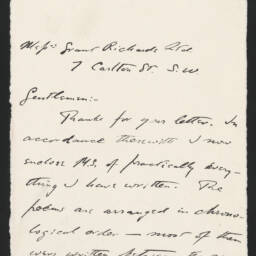 Messrs Grant Richards Ltd.
7 Carlton St. S.W.
Gentlemen:-
Thanks for your letter. In
accordance therewith I now
enclose M.S. of practically every-
thing I have written. The
poems are arranged in chrono-
logical order — most of them
were written between the